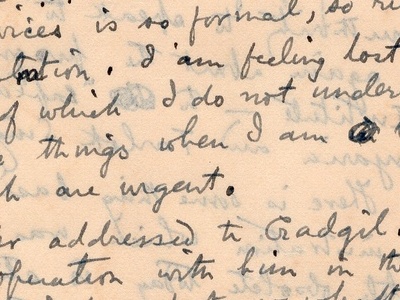 vices is so formal, so
lation. I am feeling lost
of which I do not under
things when I am a
h are urgent.
er addressed to Gradgil
operation with him in th